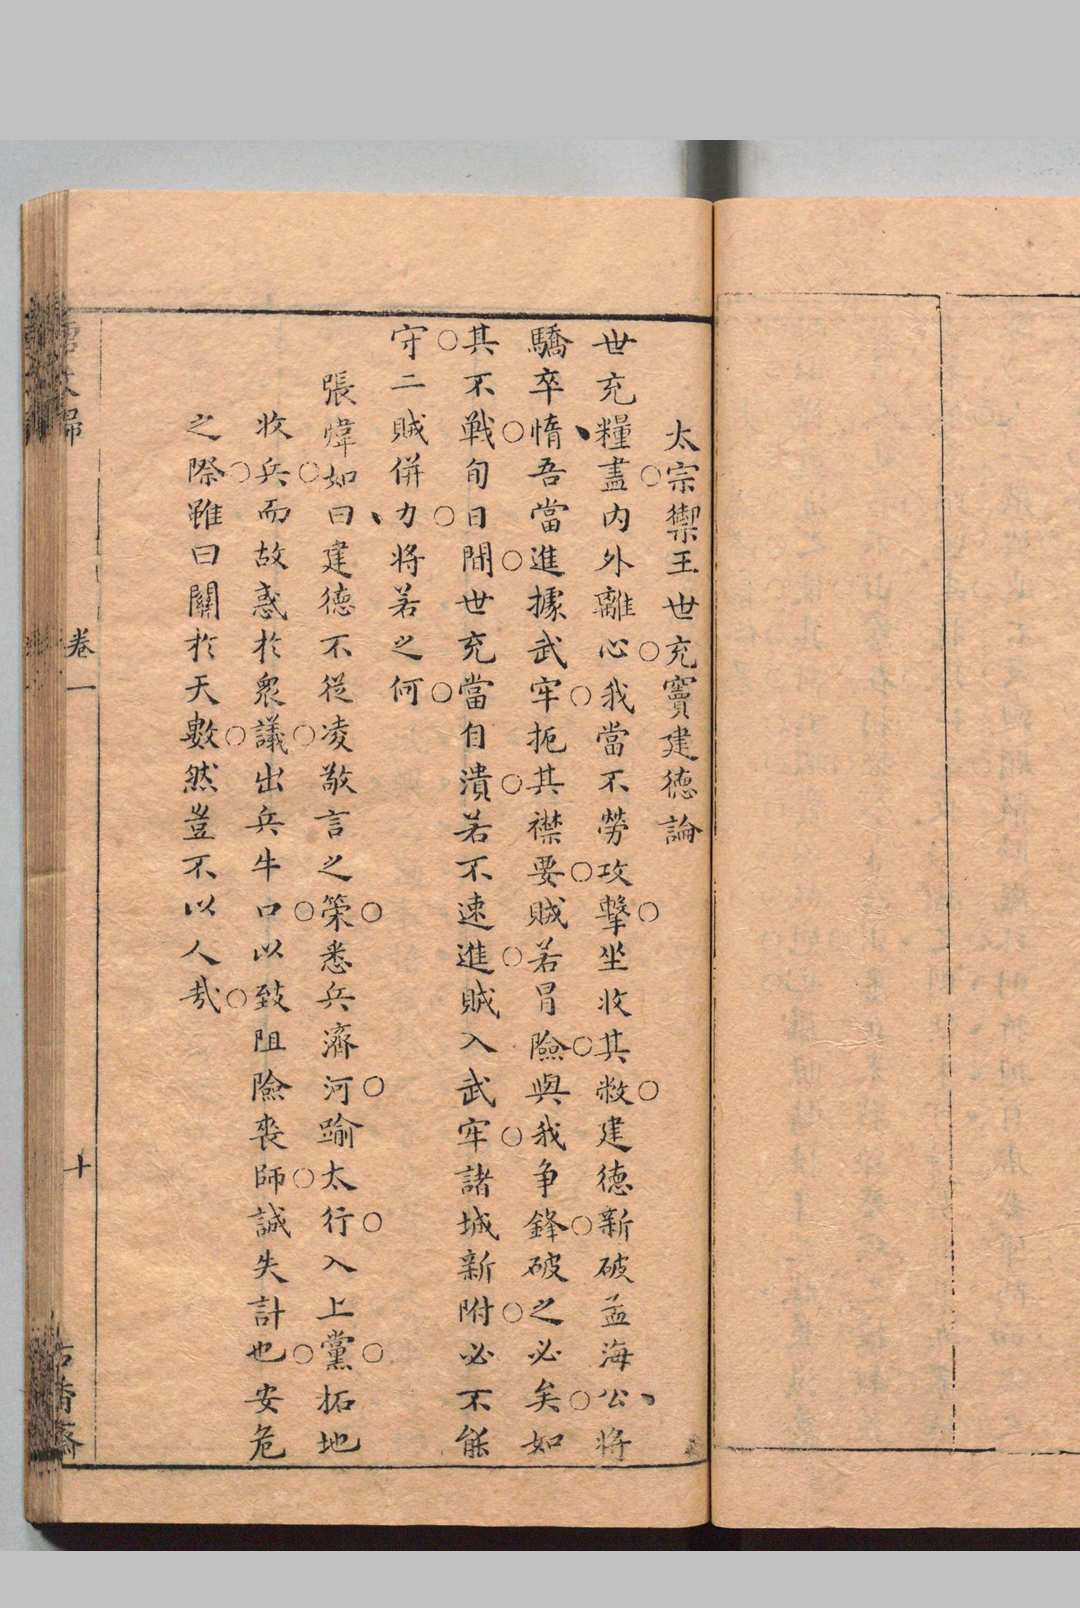 太宗禦王世充竇建德論
世充糧盡內外離心我當不勞攻擊坐收其敝建德新破孟海公將
驕卒惰吾當進據武牢扼其襟要賊若冒險與我爭鋒破之必矣如
其不戰旬日間世充當自潰若不速進賊入武牢諸城新附必不能
守二賊併力將若之何
張煒如曰建德不從凌敬言之策悉兵濟河踰太行入上黨拓地
收兵而故惑於衆議出兵牛口以致阻險喪師誠失計也安危
之際雖曰關於天數然豈不以人哉
卷一
十